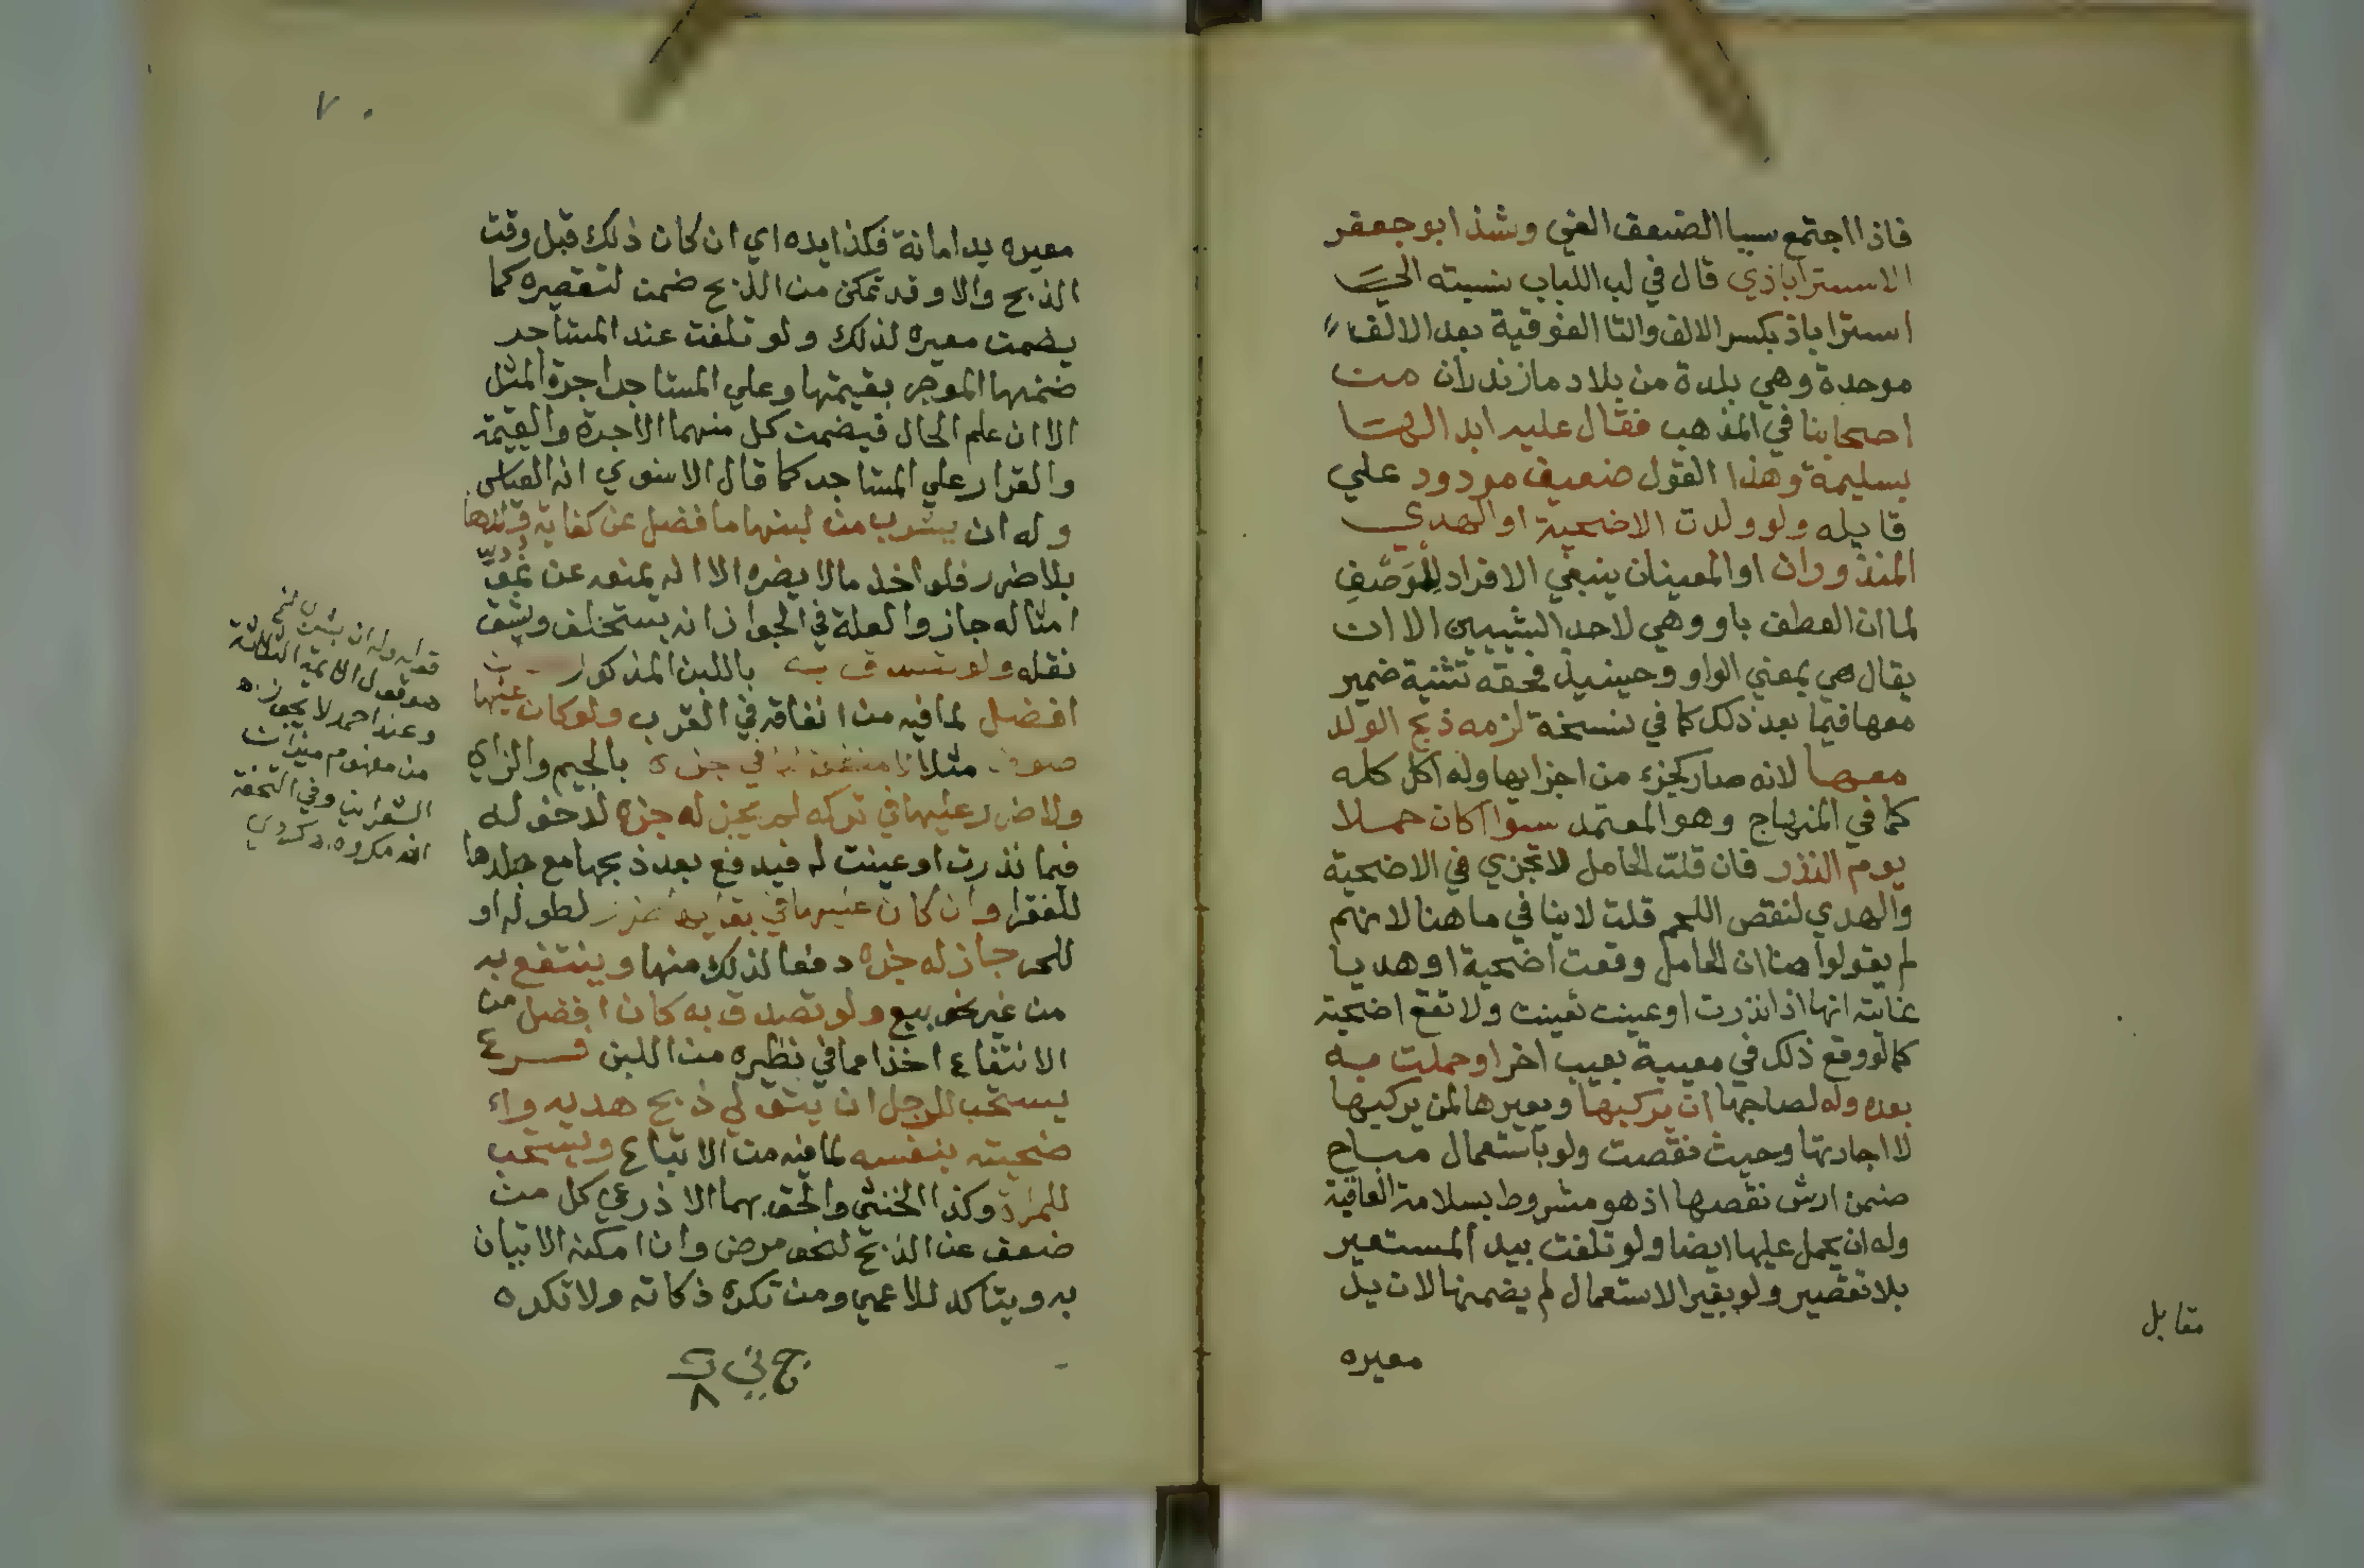 فاذا اجتمع سببا الضعف الغي وشذ ابو جعفر
الاستراباذي قال في لب اللباب نسبته الي
استراباذ بكسر الالف والتا الفوقية بعد الالف
موحدة وهي بلدة من بلاد مازندران من
اصحابنا في المذهب فقال عليه ابدالها
بسليمة وهذا القول ضعيف مردود علي
قايله ولو ولدت الاضحية او الهدي
المنذوران او المعينان ينبغي الافراد للوصف
لما ان العطف باو وهي لاحد الشيين الا ان
يقال هي بمعني الواو وحينيذ فحقه تثنية ضمير
معها فيما بعد ذلك كما في نسخة لزمه ذبح الولد
معها لانه صار كجزء من اجزايها وله اكل كله
كما في المنهاج وهو المعتمد سوا اكان حملا
يوم النذر فان قلت الحامل لا تجزي في الاضحية
والهدي لنقص اللحم قلت لا ينافي ما هنا لانهم
لم يقولوا هنا ان الحامل وقعت اضحية او هديا
غايته انها اذا نذرت او عينت تعينت ولا تقع اضحية
كما لو وقع ذلك في معيبة بعيب اخر او حملت به
بعده وله لصاحبها ان يركبها ويعيرها لمن يركبها
لا اجارتها وحيث نقصت ولو باستعمال مباح
ضمن ارش نقصها اذ هو مشروط بسلامة العاقبة
وله ان يحمل عليها ايضا ولو تلفت بيد المستعير
بلا تقصير ولو بغير الاستعمال لم يضمنها لان يد
معيره
مقابل
٧٠
معيره يد امانة فكذا يده اي ان كان ذلك قبل وقت
الذبح والا وقد تمكن من الذبح ضمن لتقصيره كما
يضمن معيره لذلك ولو تلفت عند المستاجر
ضمنها الموجر بقيمتها وعلي المستاجر اجرة المثل
الا ان علم الحال فيضمن كل منهما الاجرة والقيمة
والقرار علي المستاجر كما قال الاسنوي انه القياس
وله ان يشرب من لبنها ما فضل عن كفاية ولدها
بلا ضرر فلو اخذ ما لا يضره الا انه يمنعه عن نمو
امثاله جاز والعلة في الجواز انه يستخلف ويشق
نقله ولو تصدق به باللبن المذكور
افضل لما فيه من انفاقه في القرب ولو كان عليها
صوف مثلا لا منفعة له في جزه بالجيم والزاي
ولا ضرر عليها في تركه لم يجز له جزه لدخوله
فيما نذرت او عينت له فيدفع بعد ذبحها مع جلدها
للفقرا وان كان عليها في بقايه ضرر لطوله او
للحر جاز له جزه دفعا لذلك منها وينتفع به
من غير نحو بيع ولو تصدق به كان افضل من
الانتفاع اخذا مما في نظيره من اللبن فرع
يستحب للرجل ان يتولي ذبح هديه وا
ضحيته بنفسه لما فيه من الاتباع ويستحب
للمراة وكذا الخنثي والحق بهما الاذرعي كل من
ضعف عن الذبح لنحو مرض وان امكنه الاتيان
به ويتاكد للاعمي ومن تكره ذكاته ولا تكره
قوله وله ان يشرب
هو قول الائمة الثلاثة
وعند احمد لا يجوز اه
من مفهوم ميزان
الشعراني وفي التحفة
انه مكروه اه كردي
٨